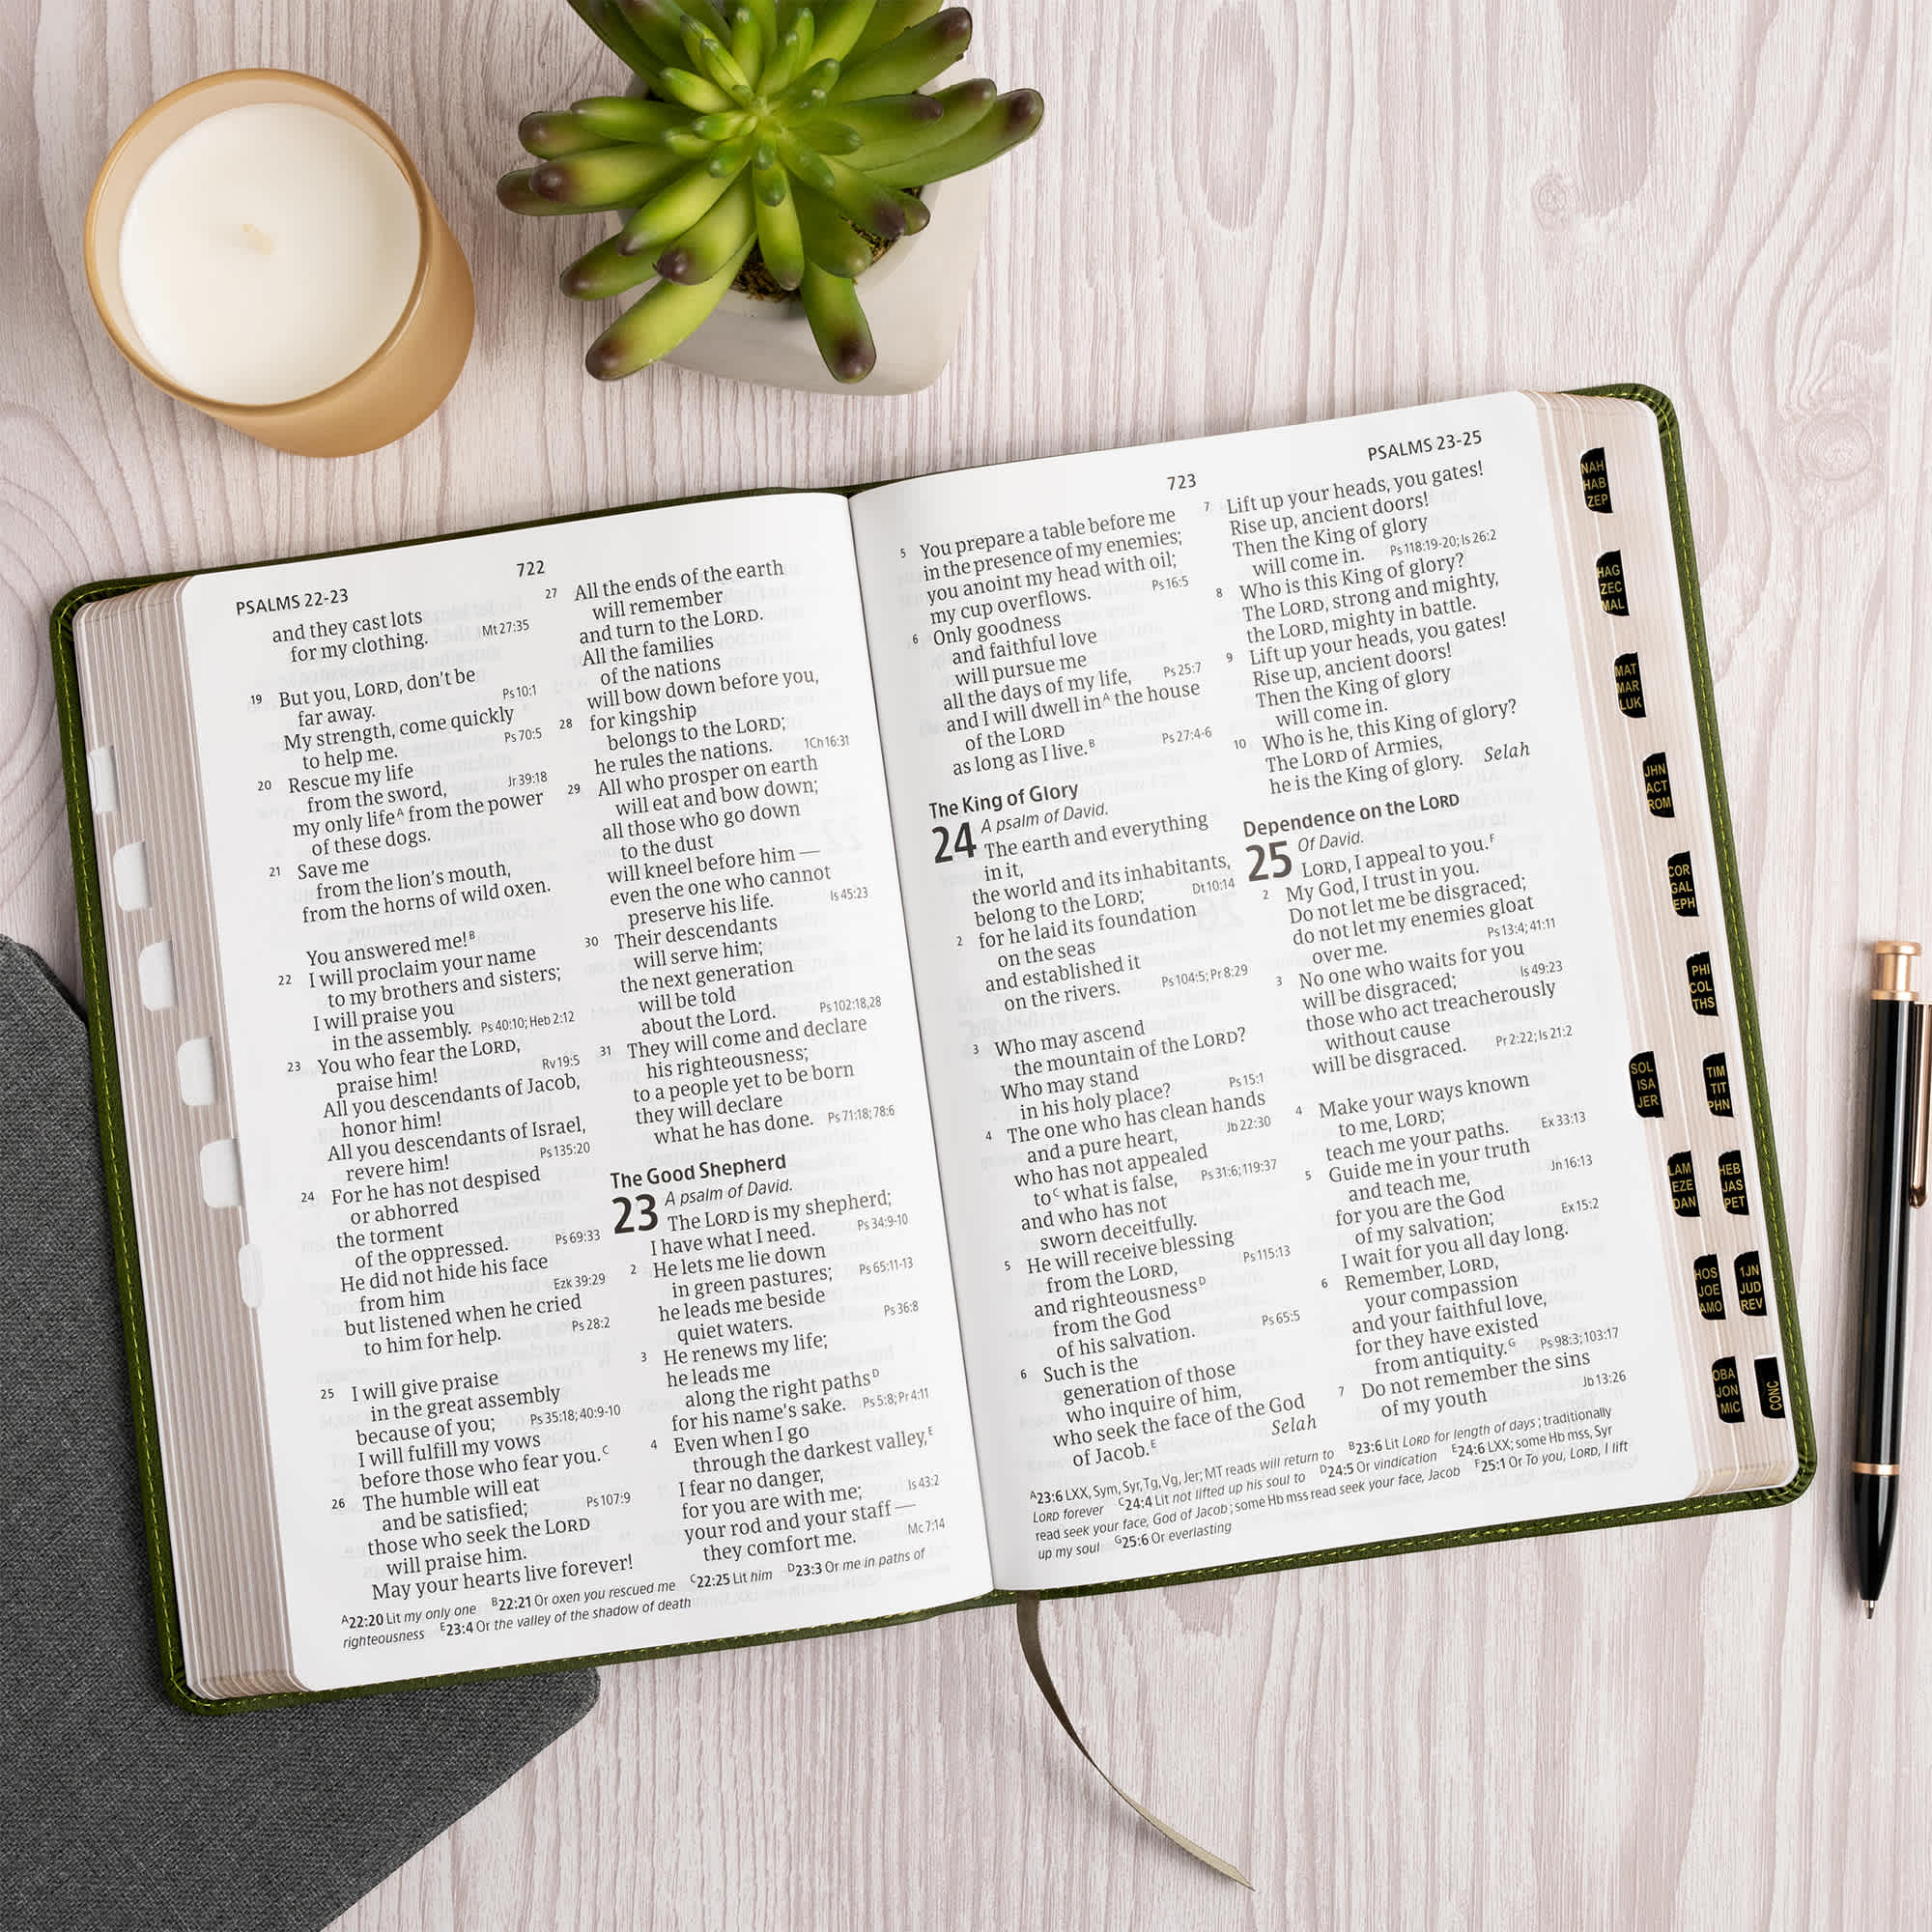 PSALMS 22-23
722
and they cast lots
for my clothing. Mt 27:35
19 But you, LORD, don't be
far away. Ps 10:1
My strength, come quickly
to help me. Ps 70:5
20 Rescue my life
from the sword, Jr 39:18
my only lifeᴬ from the power
of these dogs.
21 Save me
from the lion's mouth,
from the horns of wild oxen.
You answered me!ᴮ
22 I will proclaim your name
to my brothers and sisters;
I will praise you
in the assembly. Ps 40:10; Heb 2:12
23 You who fear the LORD,
praise him! Rv 19:5
All you descendants of Jacob,
honor him!
All you descendants of Israel,
revere him! Ps 135:20
24 For he has not despised
or abhorred
the torment
of the oppressed. Ps 69:33
He did not hide his face
from him Ezk 39:29
but listened when he cried
to him for help. Ps 28:2
25 I will give praise
in the great assembly
because of you; Ps 35:18; 40:9-10
I will fulfill my vows
before those who fear you.ᶜ
26 The humble will eat
and be satisfied; Ps 107:9
those who seek the LORD
will praise him.
May your hearts live forever!
27 All the ends of the earth
will remember
and turn to the LORD.
All the families
of the nations
will bow down before you,
28 for kingship
belongs to the LORD;
he rules the nations. 1Ch 16:31
29 All who prosper on earth
will eat and bow down;
all those who go down
to the dust
will kneel before him —
even the one who cannot
preserve his life. Is 45:23
30 Their descendants
will serve him;
the next generation
will be told
about the Lord. Ps 102:18,28
31 They will come and declare
his righteousness;
to a people yet to be born
they will declare
what he has done. Ps 71:18; 78:6
The Good Shepherd
23 A psalm of David.
The LORD is my shepherd;
I have what I need. Ps 34:9-10
2 He lets me lie down
in green pastures; Ps 65:11-13
he leads me beside
quiet waters. Ps 36:8
3 He renews my life;
he leads me
along the right pathsᴰ
for his name's sake. Ps 5:8; Pr 4:11
4 Even when I go
through the darkest valley,ᴱ
I fear no danger,
for you are with me; Is 43:2
your rod and your staff —
they comfort me. Mc 7:14
ᴬ22:20 Lit my only one ᴮ22:21 Or oxen you rescued me ᶜ22:25 Lit him ᴰ23:3 Or me in paths of
righteousness ᴱ23:4 Or the valley of the shadow of death
723
PSALMS 23-25
5 You prepare a table before me
in the presence of my enemies;
you anoint my head with oil;
my cup overflows. Ps 16:5
6 Only goodness
and faithful love
will pursue me
all the days of my life, Ps 25:7
and I will dwell inᴬ the house
of the LORD
as long as I live.ᴮ Ps 27:4-6
The King of Glory
24 A psalm of David.
The earth and everything
in it,
the world and its inhabitants,
belong to the LORD; Dt 10:14
2 for he laid its foundation
on the seas
and established it
on the rivers. Ps 104:5; Pr 8:29
3 Who may ascend
the mountain of the LORD?
Who may stand
in his holy place? Ps 15:1
4 The one who has clean hands
and a pure heart, Jb 22:30
who has not appealed
toᶜ what is false, Ps 31:6; 119:37
and who has not
sworn deceitfully.
5 He will receive blessing
from the LORD, Ps 115:13
and righteousnessᴰ
from the God
of his salvation. Ps 65:5
6 Such is the
generation of those
who inquire of him,
who seek the face of the God
of Jacob.ᴱ Selah
7 Lift up your heads, you gates!
Rise up, ancient doors!
Then the King of glory
will come in. Ps 118:19-20; Is 26:2
8 Who is this King of glory?
The LORD, strong and mighty,
the LORD, mighty in battle.
9 Lift up your heads, you gates!
Rise up, ancient doors!
Then the King of glory
will come in.
10 Who is he, this King of glory?
The LORD of Armies,
he is the King of glory. Selah
Dependence on the LORD
25 Of David.
LORD, I appeal to you.ᶠ
2 My God, I trust in you.
Do not let me be disgraced;
do not let my enemies gloat
over me. Ps 13:4; 41:11
3 No one who waits for you
will be disgraced; Is 49:23
those who act treacherously
without cause
will be disgraced. Pr 2:22; Is 21:2
4 Make your ways known
to me, LORD;
teach me your paths. Ex 33:13
5 Guide me in your truth
and teach me, Jn 16:13
for you are the God
of my salvation; Ex 15:2
I wait for you all day long.
6 Remember, LORD,
your compassion
and your faithful love,
for they have existed
from antiquity.ᴳ Ps 98:3; 103:17
7 Do not remember the sins
of my youth Jb 13:26
ᴬ23:6 LXX, Sym, Syr, Tg, Vg, Jer; MT reads will return to ᴮ23:6 Lit LORD for length of days; traditionally
LORD forever ᶜ24:4 Lit not lifted up his soul to ᴰ24:5 Or vindication ᴱ24:6 LXX; some Hb mss, Syr
read seek your face, God of Jacob; some Hb mss read seek your face, Jacob ᶠ25:1 Or To you, LORD, I lift
up my soul ᴳ25:6 Or everlasting
NAH
HAB
ZEP
HAG
ZEC
MAL
MAT
MAR
LUK
JHN
ACT
ROM
COR
GAL
EPH
PHI
COL
THS
SOL
ISA
JER
TIM
TIT
PHN
LAM
EZE
DAN
HEB
JAS
PET
HOS
JOE
AMO
1JN
JUD
REV
OBA
JON
MIC
CONC